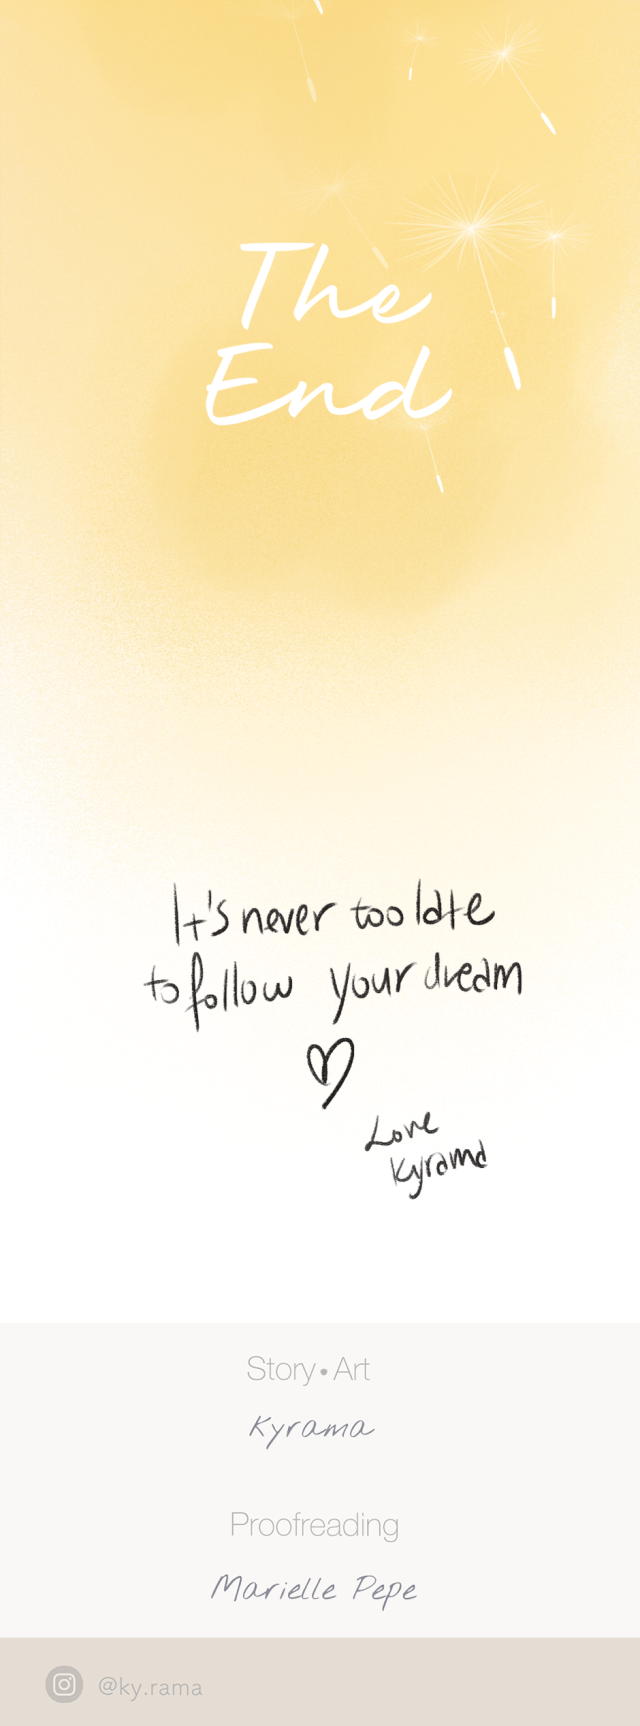 The
End
It's never too late
to follow your dream
Love
Kyrama
Story•Art
Kyrama
Proofreading
Marielle Pepe
@ky.rama